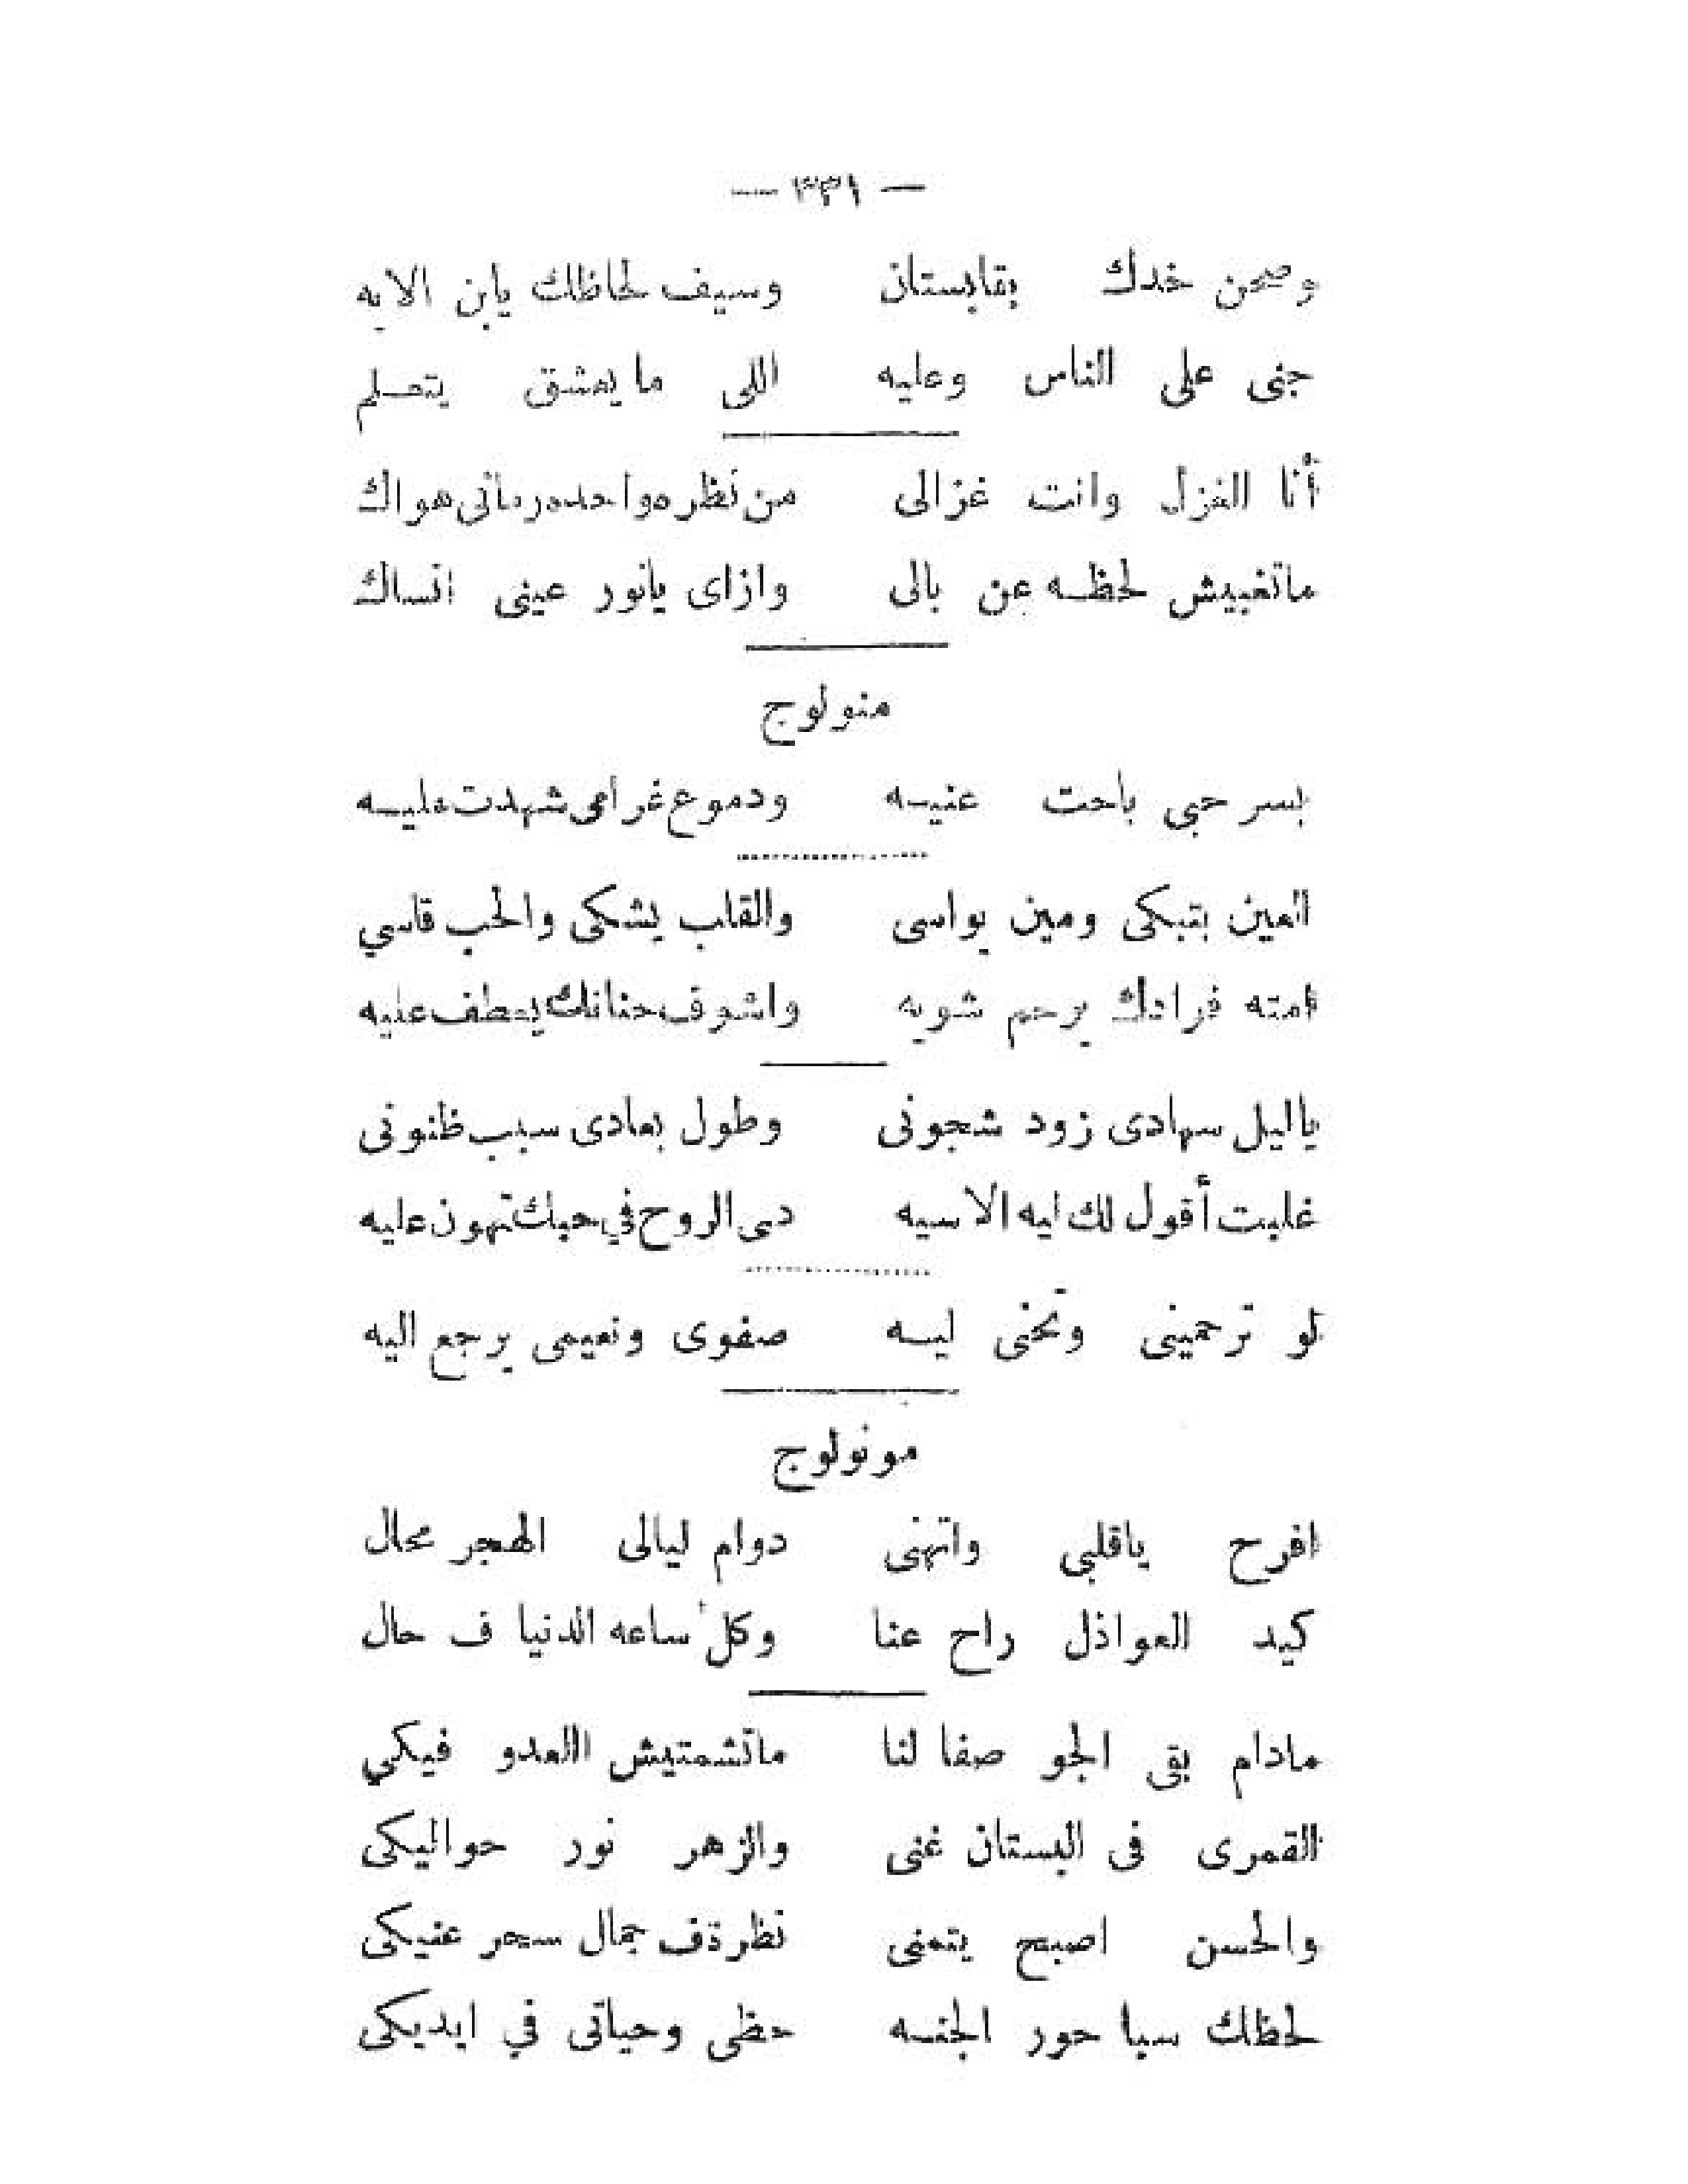 — ٣٣١ —
وصحن خدك بقابستان وسيف لحاظك يابن الايه
جنى على الناس وعليه اللى ما يعشق يتعلم
أنا الغزل وانت غزالى من نظره واحده رمانى هواك
ماتغيبش لحظه عن بالى وازاى يانور عينى انساك
منولوج
بسر حبى باحت عنيه ودموع غرامى شهدت عليه
العين بتبكى ومين يواسى والقلب يشكى والحب قاسي
امته فرادك يرحم شويه واشوف حنانك يعطف عليه
ياليل سهادى زود شجونى وطول بعادى سبب ظنونى
غلبت أقول لك ايه الاسيه دى الروح في حبك تهون عليه
لو ترحمينى وتحنى ليه صفوى ونعيمى يرجع اليه
مونولوج
افرح ياقلبى واتهنى دوام ليالى الهجر محال
كيد العواذل راح عنا وكل ساعه الدنيا ف حال
مادام بقى الجو صفا لنا ماتشمتيش العدو فيكي
القمرى فى البستان غنى والزهر نور حواليكى
والحسن اصبح يتمنى نظرة ف جمال سحر عنيكى
لحظك سبا حور الجنه حظى وحياتى في ايديكى